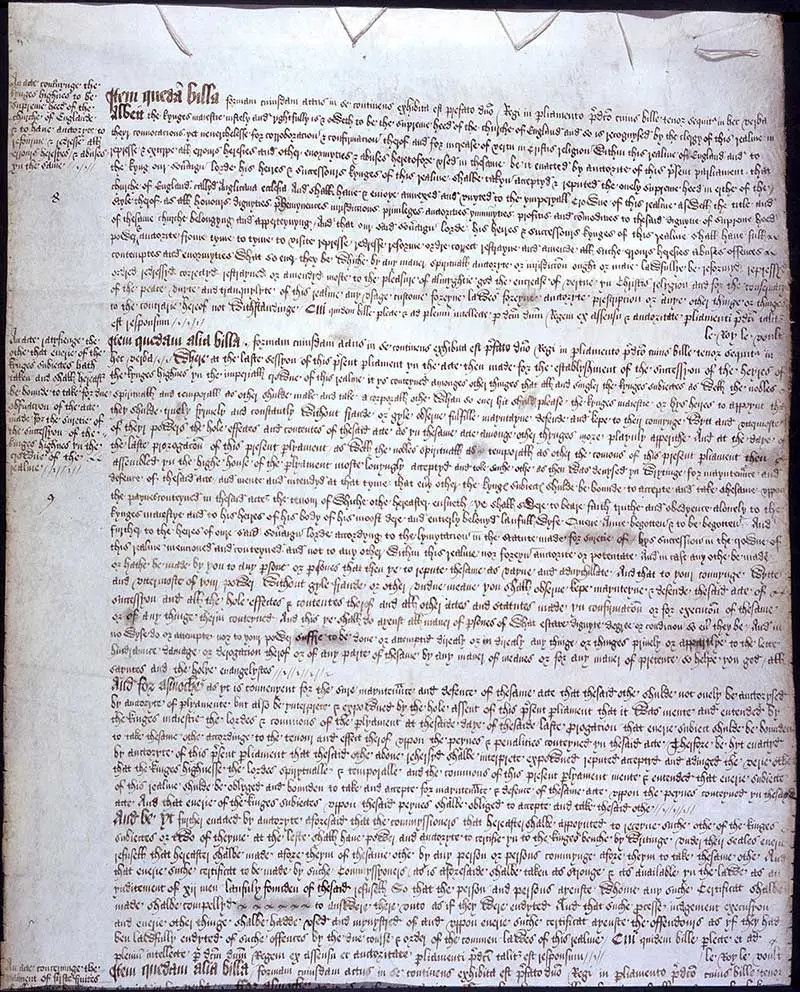 An acte concernynge the
kynges highnes to be
supreme heed of the
churche of Englande
& to have auctoryte to
refourme & redresse all
errours heresyes & abuses
yn the same
8
Item quedam billa formam cuiusdam actus in se continens exhibita est prefato dño Regi in pliamento pdcto cuius bille tenor sequitr in hec verba
Albeit the kynges maiestie iustely and rightfully is & oweth to be the supreme heed of the churche of England and so is recognysed by the clergy of this realme in
theyr convocations yet neverthelesse for corroboration & confirmation therof and for increase of vertu in Cristis religion within this realme of England and to
represse & extyrpe all errours heresies and other enormytes & abuses heretofore used in thesame be it enacted by auctorite of this psent parliament that
the kyng our soveraign lorde his heires & successours kynges of this realme shalbe taken accepted & reputed the onely supreme heed in erthe of the
churche of England callyd Anglicana ecclesia And shall have & enioye annexed and unyted to the ymperyall crowne of this realme aswell the title and
style therof as all honours dignyties prhemynences iurisdictions privileges auctorities ymmunyties profitis and comodities to thesaid dignyte of supreme heed
of thesame churche belongyng and apperteynyng And that our said soveraign lorde his heires & successours kynges of this realme shall have full
power & auctorite from tyme to tyme to visite represse redresse refourme ordre correct restrayne and amende all suche errours heresies abuses offences
contemptes and enormytes what so ever they be whiche by any maner spirituall auctoryte or iurisdiction ought or maie laufullye be refourmyd repressed
ordred redressyd correctyd restrayned or amendyd moste to the pleasure of almyghtie god the encrease of vertue yn Christis religion and for the conservacon
of the peace unite and tranquylyte of this realme any usage custome foreyne lawes foreyne auctoryte prescription or anye other thinge or thinges
to the contrarie hereof not withstandinge Cui quidem bille plecte & ad plenum intellecte p dcm dnm Regem ex assensu & auctoritate pliamenti pdci taliter
est responsum
le Roy le voult
An acte ratifienge the
othe that everie of the
kynges subiectes hath
taken and shall hereaft
be bounde to take for due
observacion of the acte
made for the suretie of
the succession of the
kynges highnes yn the
crowne of the
realme
9
Item quedam alia billa formam cuiusdam actus in se continens exhibita est pfato dño Regi in pliamento pdcto cuius bille tenor sequitr in
hec verba Where at the laste session of this psent pliament yn the acte then made for the establisshment of the succession of the heires of
the kynges highnes yn the imperiall crowne of this realme it ys conteyned amonges other thinges that all and singler the kynges subiectes as well the nobles
spirituall and temporall as other shulde make and take a corporall othe whan so ever his shuld please the kynges maiestie or hys heires to appoynt that
they shulde truely firmely and constantly without fraude or gyle observe fulfille mayntayne defende and kepe to their connyng wytt and uttermoste
of theyr powers the hole effectes and contentes of thesaid acte as yn thesame acte among other thynges more playnly apperithe And at the daye of
the laste prorogacion of this present plyament as well the nobles spirituall as temporall as other the comons of this present pliament then
assembled yn the highe house of the plyament moste lovyngly accepted and toke suche othe as then was devysed yn writinge for mayntenuce and
defence of thesaid acte and mente and intendyd at that tyme that every other the kynge subiectes shulde be bounde to accepte and take thesame upon
the paynes conteyned in thesaid acte the tenour of whiche othe hereafter ensueth ye shall swere to beare faith truthe and obedyence alonely to the
kynges maiestye and to his heires of his body of his moost dere and entierly beloved laufull wyfe Quene Anne begotten & to be begotten And
further to the heires of oure said soveraign lorde accordyng to the lymytation in the statute made for suretie of hys succession in the crowne of
this realme mentioned and conteyned and not to any other within this realme nor foreyn auctorite or potentate And in case any othe be made
or hathe be made by you to any psone or psones that then ye to repute thesame as vayne and adnychillate And that to your connynge wytte
and uttermoste of your power without gyle fraude or other undue meane you shall observe kepe maynteyne & defende thesaid acte of
succession and all the hole effectes & contentes therof and all other actes and statutes made yn confirmation or for execution of thesame
or of any thinge therin conteyned And this ye shall do ayenst all maner of psones of what estate dignyte degree or condition so ever they be And in
no wyse do or attempte nor to your power suffre to be done or attempted directly or indirectly any thinge or thinges prively or appartlye to the lette
hindraunce damage or derogation therof or of any parte of thesame by any maner of meanes or for any maner of pretence so helpe you god all
sayntes and the holye evangelystes
And for asmoche as yt is convenyent for the sure mayntenuce and defence of thesame acte that thesaid othe shulde not onely be auctorysed
by auctorite of plyamente but also be ynterpreted & expounded by the hole assent of this psent pliament that it was mente and intended by
the kynges maiestie the lordes & commons of the plyament at thesaide daye of thesaide laste prorogation that everie subiect shulde be bounden
to take thesame othe accordinge to the tenour and effect therof uppon the peynes & penalities conteyned yn thesaid acte Therfore be hyt enacted
by auctoryte of this psent pliament that thesaid othe above rehersyd shalbe interpreted expounded reputed accepted and adiuged the verie othe
that the kinges highnesse the lordes spirytualle & temporalle and the commons of this present plyament mente & entended that everie subiecte
of this realme shulde be obliged and bounden to take and accepte for mayntenuce & defence of thesame acte uppon the peynes conteyned yn thesaid
acte And that everie of the kinges subiectes uppon thesaid peynes shalbe obliged to accepte and take thesaid othe
And be yt further enacted by auctoryte aforesaid that the commyssioners that hereafter shalbe appoynted to receyve suche othe of the kinges
subiectes or two of theyme at the leste shall have power and auctoryte to certifie yn to the kinges benche by writinge under their seales everie
refusell that hereafter shalbe made afore theym of thesame othe by any person or persons commynge afore theym to take thesame othe And
that everie suche certificat to be made by suche commyssioners as is aforesaide shalbe taken as stronge & as available yn the lawe as an
inditement of xij men laufully founden of thesaid refusell So that the person and persons ayenste whome any suche certificat shalbe
made shalbe compellyd to answere there unto as if they were endyted And that suche processe iudgement execusion
and everie other thinge shalbe hadde used and mynystred of and uppon everie suche certificat ayenste the offendours as yf they had
ben laufully endyted of suche offences by the due course & order of the commen lawes of this realme Cui quidem bille plecte et ad
plenum intellecte p dcm dnm Regem ex assensu et auctoritate pliamenti pdci taliter est responsum
le Roy le voult
An acte concernynge the
Item quedam alia billa formam cuiusdam actus in se continens exhibita est prefato dño Regi in pliamento pdcto cuius bille tenor